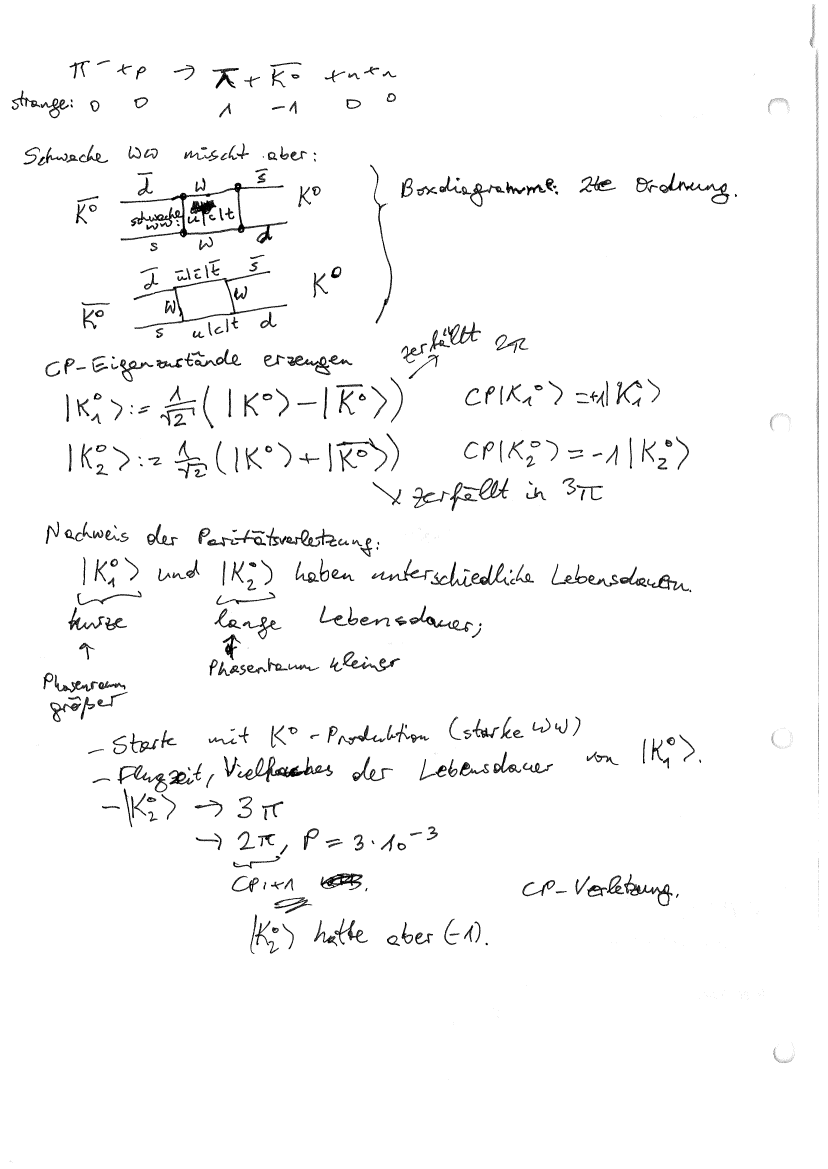 π⁻ + p → Λ̅ + K̅⁰ + n + n
strange: 0 0 1 -1 0 0
Schwache WW mischt aber:
d̅ W s̅
K̅⁰ schwache WW: u|c|t K⁰
s W d
Boxdiagramme: 2te Ordnung.
d̅ u̅|c̅|t̅ s̅
K̅⁰ W W K⁰
s u|c|t d
CP-Eigenzustände erzeugen
zerfällt 2π
|K₁⁰⟩ := 1/√2 (|K⁰⟩ - |K̅⁰⟩) CP|K₁⁰⟩ = +1|K₁⁰⟩
|K₂⁰⟩ := 1/√2 (|K⁰⟩ + |K̅⁰⟩) CP|K₂⁰⟩ = -1|K₂⁰⟩
↘ zerfällt in 3π
Nachweis der Paritätsverletzung:
|K₁⁰⟩ und |K₂⁰⟩ haben unterschiedliche Lebensdauern.
kurze lange Lebensdauer;
↑ ↑
Phasenraum größer Phasenraum kleiner
- Starte mit K⁰-Produktion (starke WW)
- Flugzeit, Vielfaches der Lebensdauer von |K₁⁰⟩.
- |K₂⁰⟩ → 3π
→ 2π, P = 3·10⁻³
CP: +1
CP-Verletzung.
|K₂⁰⟩ hatte aber (-1).